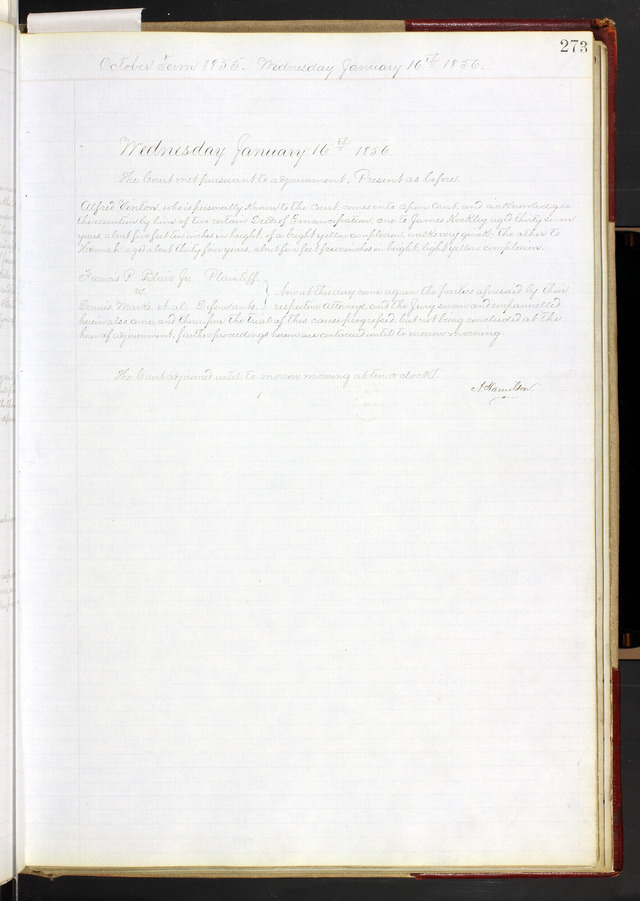 273
October Term 1855. Wednesday January 16th 1856.
Wednesday January 16th 1856.
The Court met pursuant to adjournment. Present as before.
Alfred Vinton, who is personally known to the Court, comes into open Court, and acknowledges
the execution by him of two certain Deeds of Emancipation, one to James Heckley, aged thirty seven
years, about five feet ten inches in height, of a bright yellow complexion, walks very quick; the other to
Hannah aged about thirty four years, about five feet four inches in height, light yellow complexion.
Francis P. Blair Jr. Plaintiff.
vs
Now at this day come again the parties aforesaid by their
Dennis Marks, et al. Defendants.
respective Attorneys and the Jury sworn and empannelled
herein also come, and thereupon the trial of this cause progressed, but not being concluded at the
hour of adjournment, further proceedings herein are continued until to morrow morning
The Court adjourned until to morrow morning at ten o'clock.
A Hamilton